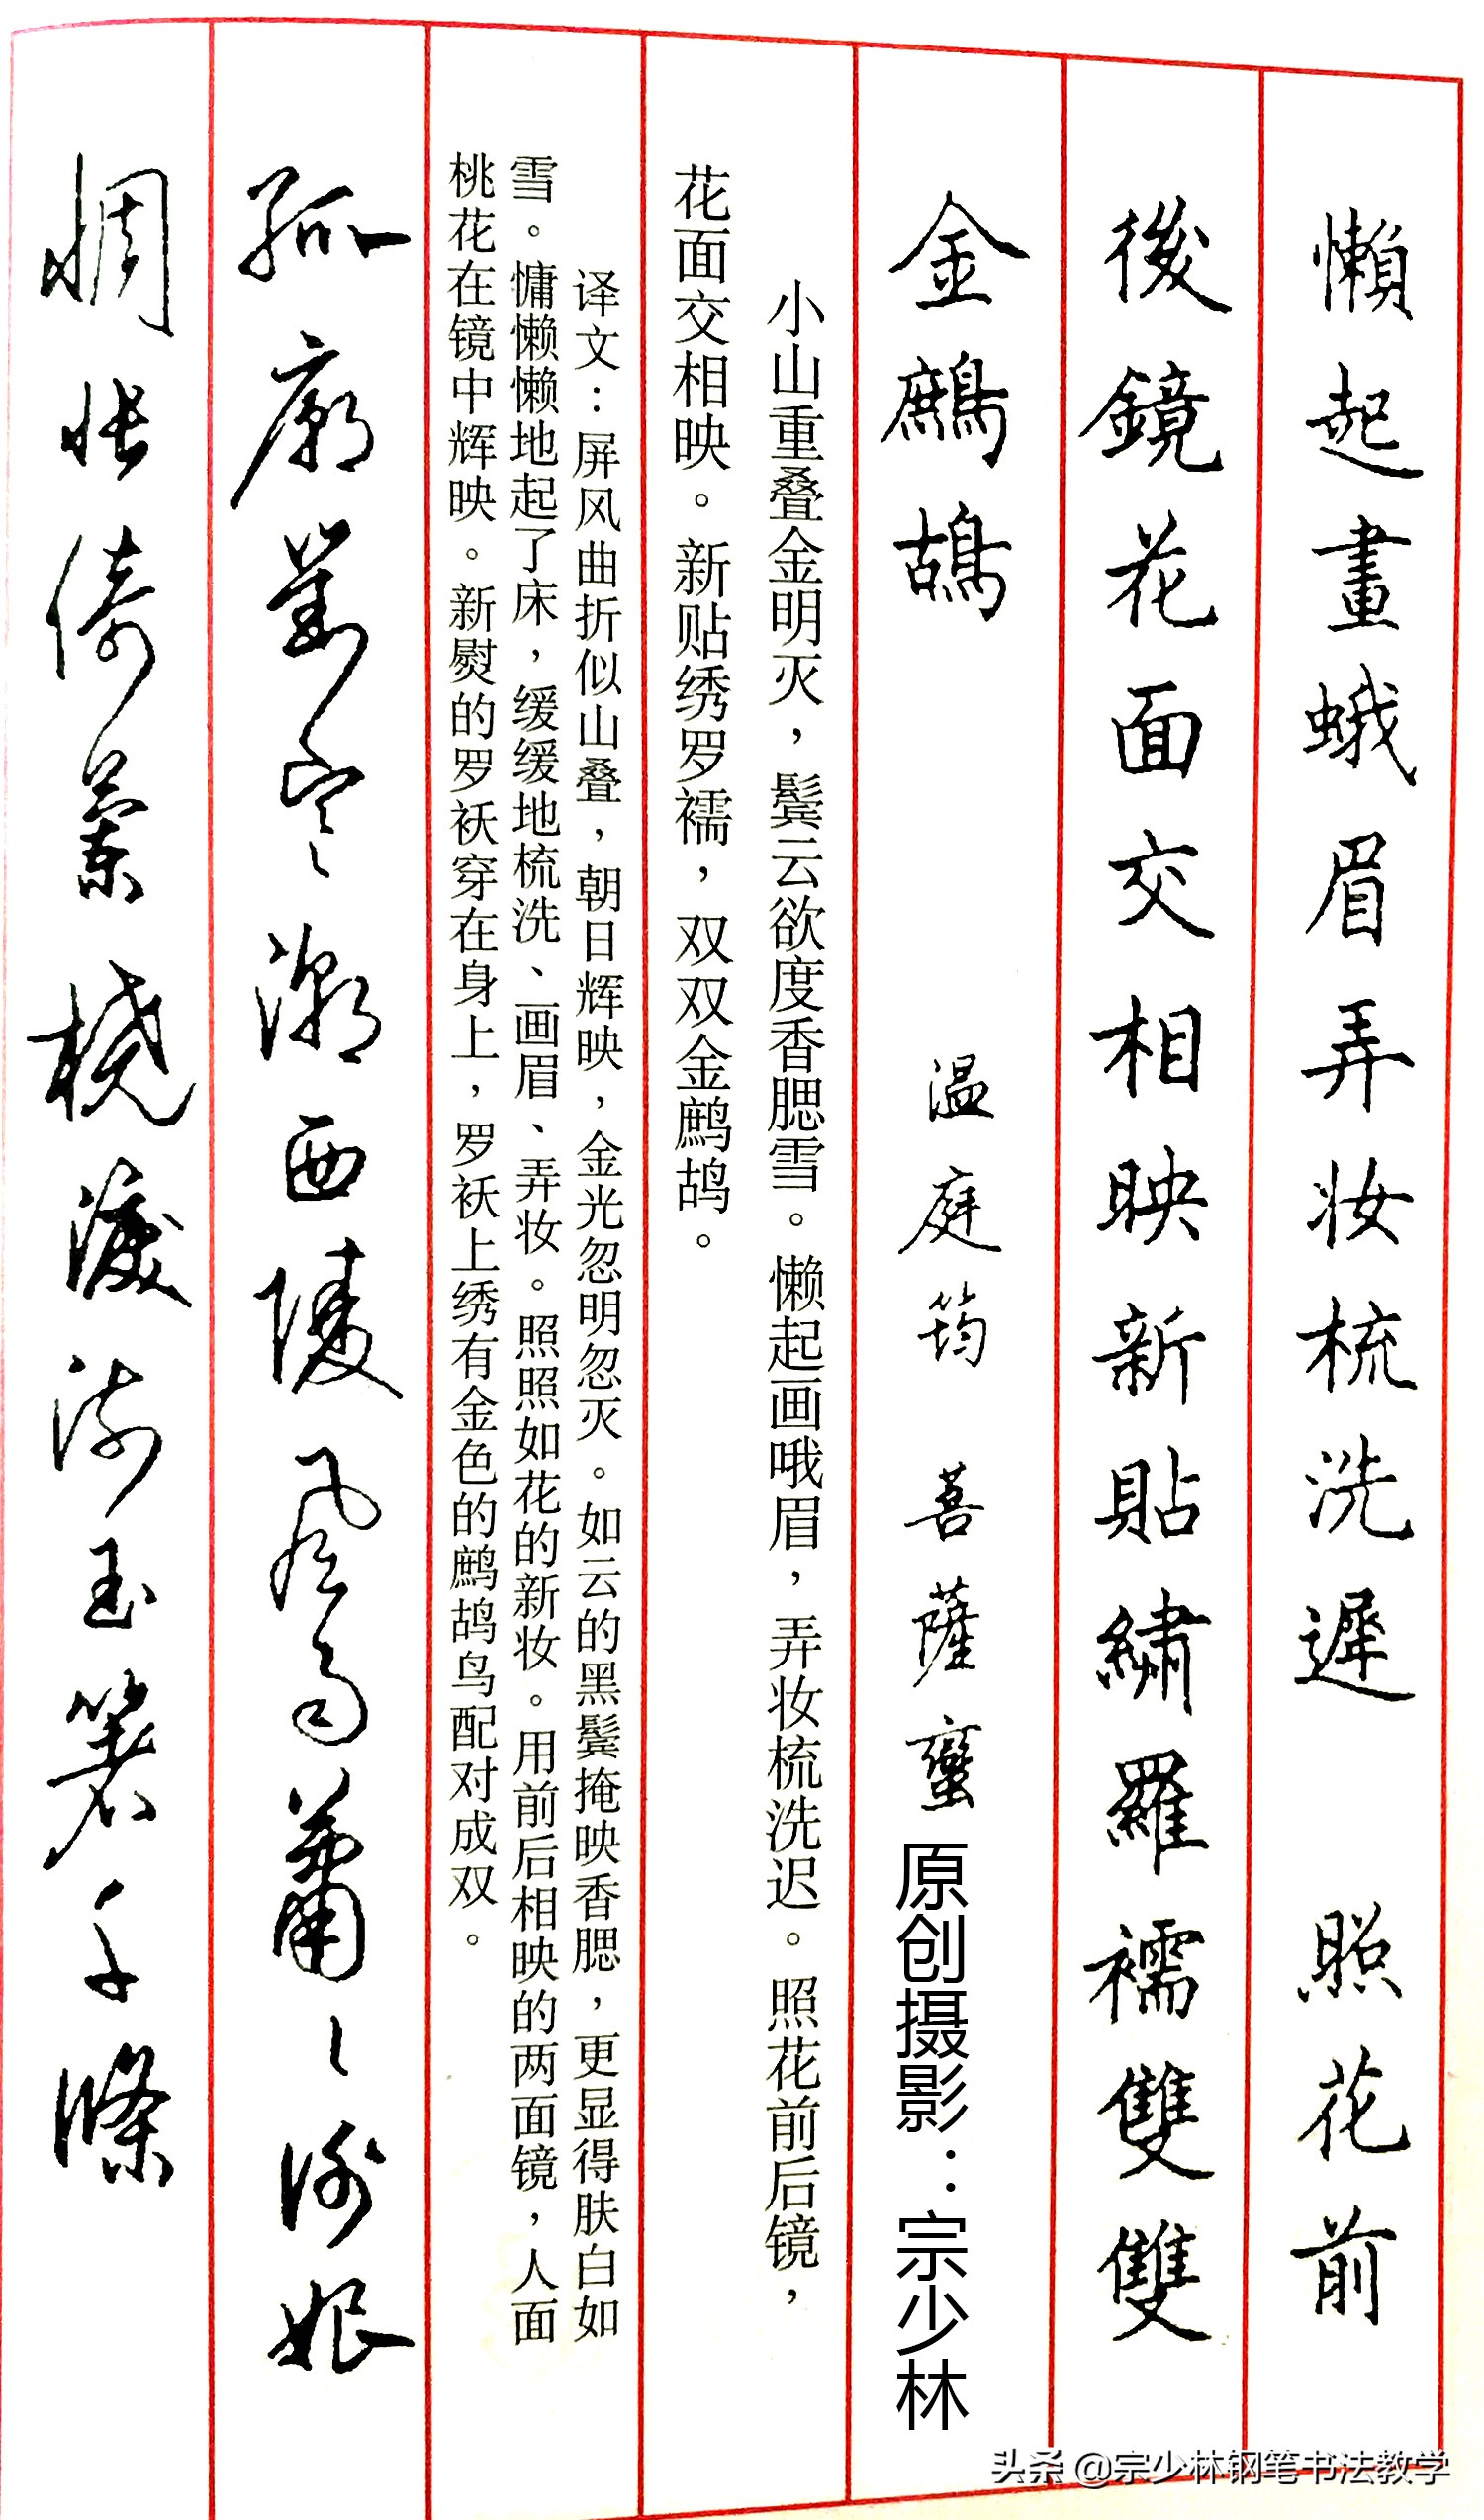 懶起畫蛾眉弄妆梳洗遲 照花前
後鏡花面交相映新貼繡羅襦雙雙
金鷓鴣 温庭筠 菩薩蠻
原创摄影：宗少林
小山重叠金明灭，鬓云欲度香腮雪。懒起画哦眉，弄妆梳洗迟。照花前后镜，
花面交相映。新贴绣罗襦，双双金鹧鸪。
译文：屏风曲折似山叠，朝日辉映，金光忽明忽灭。如云的黑鬓掩映香腮，更显得肤白如
雪。慵懒懒地起了床，缓缓地梳洗、画眉、弄妆。照照如花的新妆。用前后相映的两面镜，人面
桃花在镜中辉映。新熨的罗袄穿在身上，罗袄上绣有金色的鹧鸪鸟配对成双。
孤廟對寒潮西陵風雨蕭々謝娘
惆悵倚蘭橈淚流玉箸千條
头条 @宗少林钢笔书法教学